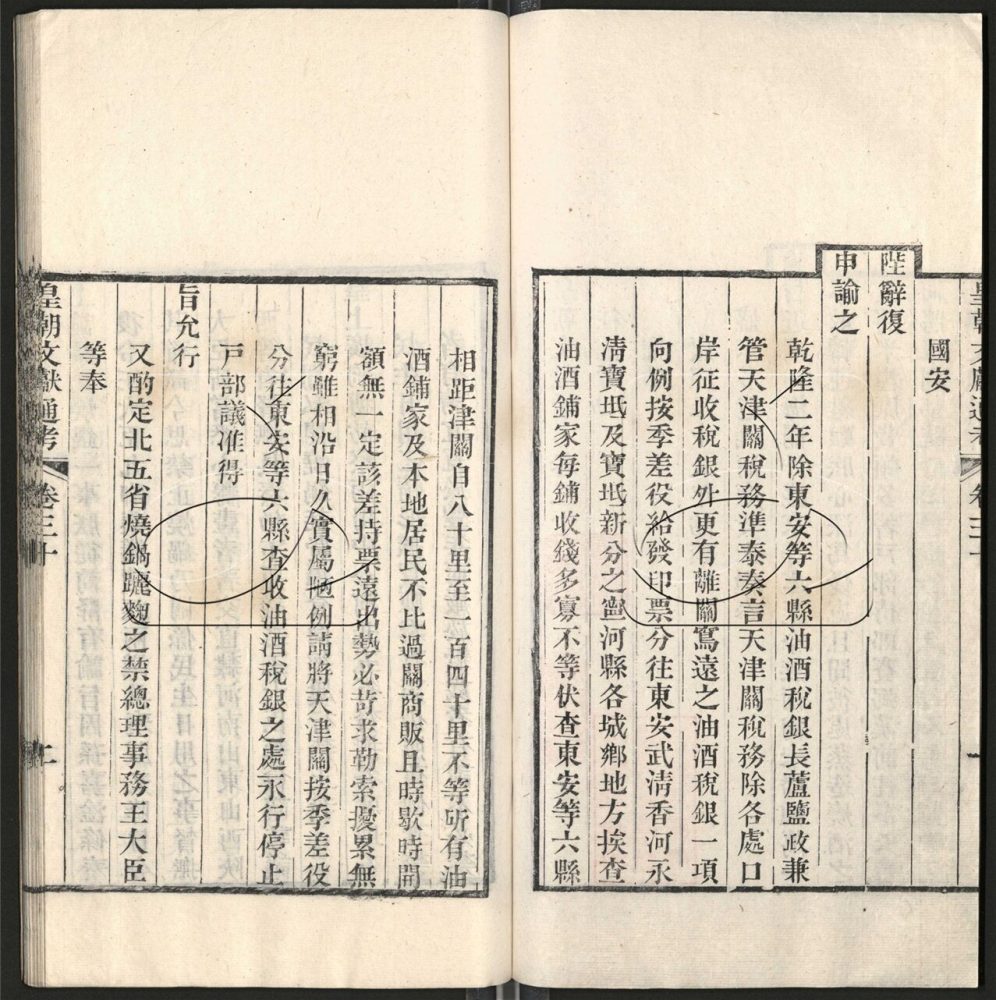 皇朝文獻通考 卷三十
國安
陛辭復
申諭之
乾隆二年除東安等六縣油酒稅銀長蘆鹽政兼
管天津關稅務準泰奏言天津關稅務除各處口
岸征收稅銀外更有離關寫遠之油酒稅銀一項
向例按季差役給發印票分往東安武淸香河永
淸寶坻及寶坻新分之甯河縣各城鄉地方挨查
油酒鋪家每鋪收錢多寡不等伏查東安等六縣
相距津關自八十里至一百四十里不等所有油
酒鋪家及本地居民不比過關商販且時歇時開
額無一定該差持票遠出勢必苛求勒索擾累無
窮雖相沿日久實屬陋例請將天津關按季差役
分往東安等六縣查收油酒稅銀之處永行停止
戸部議准得
旨允行
又酌定北五省燒鍋躧麴之禁總理事務王大臣
等奉
皇朝文獻通考 卷三十